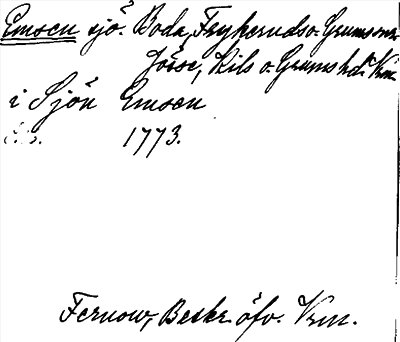 Emsen sjö. Boda, Frykeruds o. Grums snr
Jösse, Kils o. Grums hdr Vrm
i Sjön Emsen
1773.
Fernow, Beskr. öfv. Vrm.